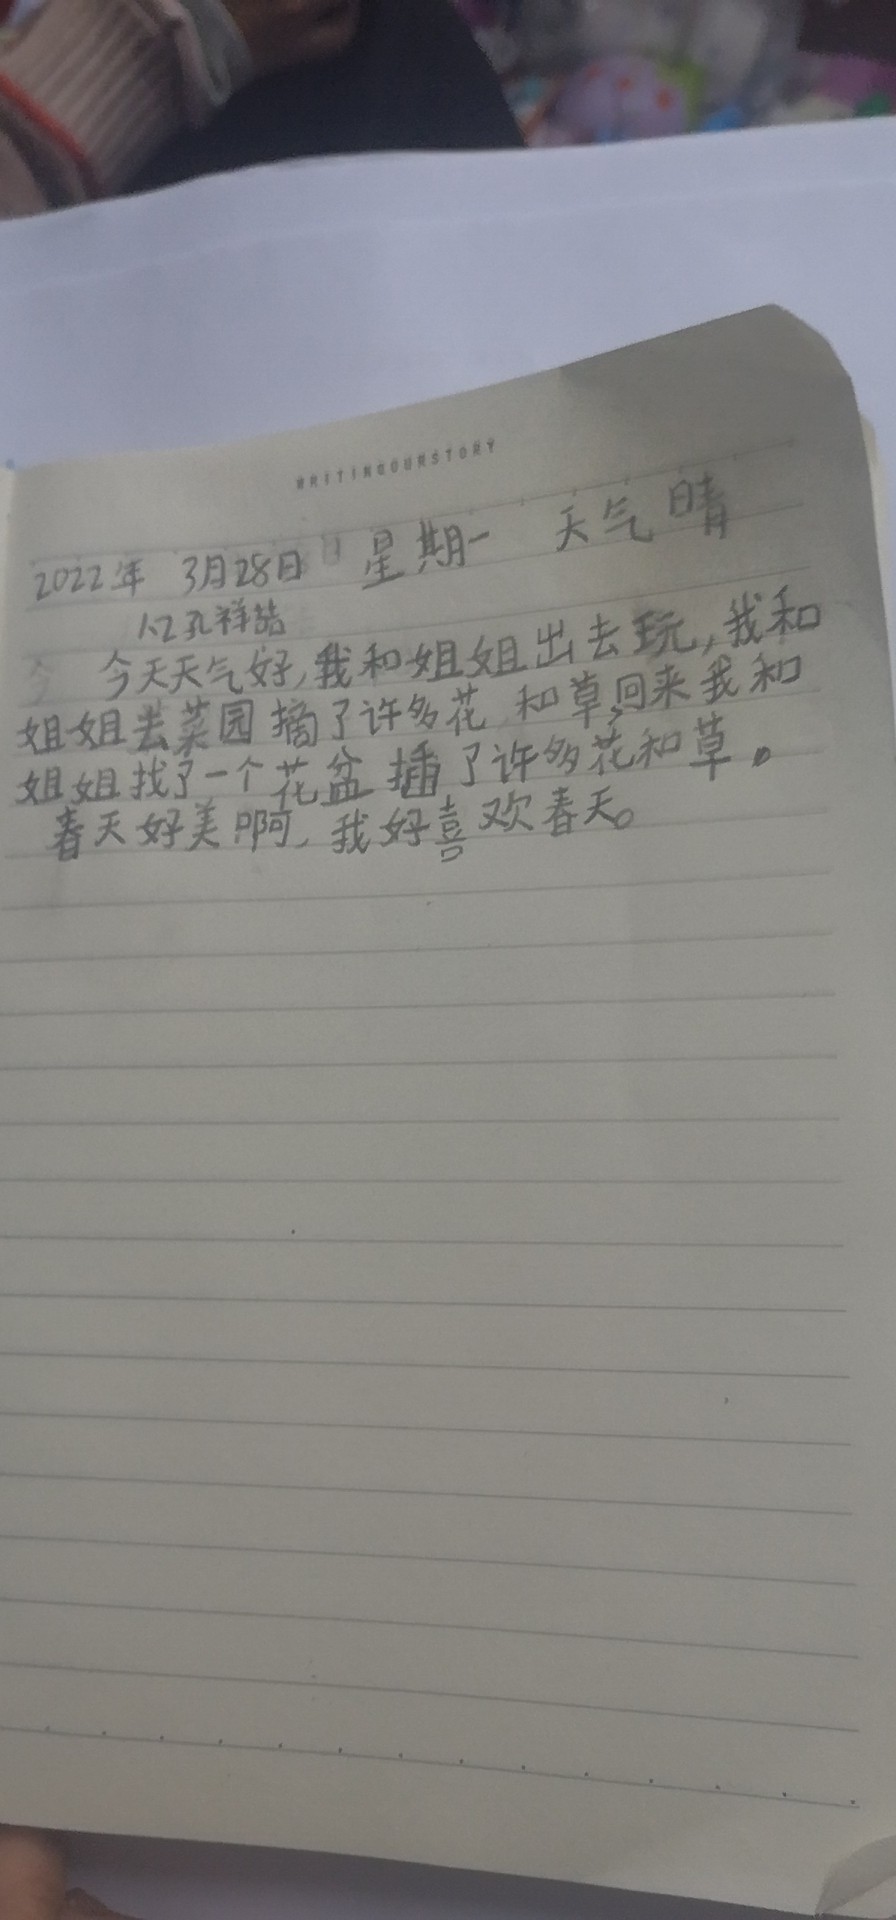 WRITINGOURSTORY
2022年 3月28日 星期一 天气晴
孔祥喆
今 今天天气好,我和姐姐出去玩,我和
姐姐去菜园摘了许多花和草,回来我和
姐姐找了一个花盆插了许多花和草。
春天好美啊,我好喜欢春天。